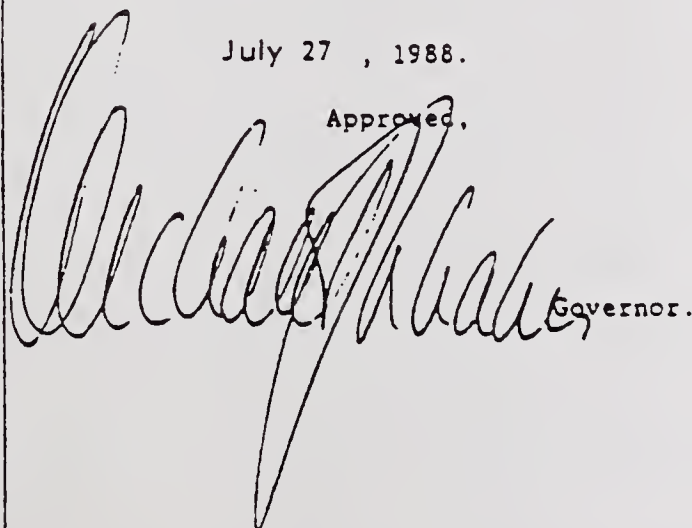 July 27 , 1988.
Approved,
Governor.